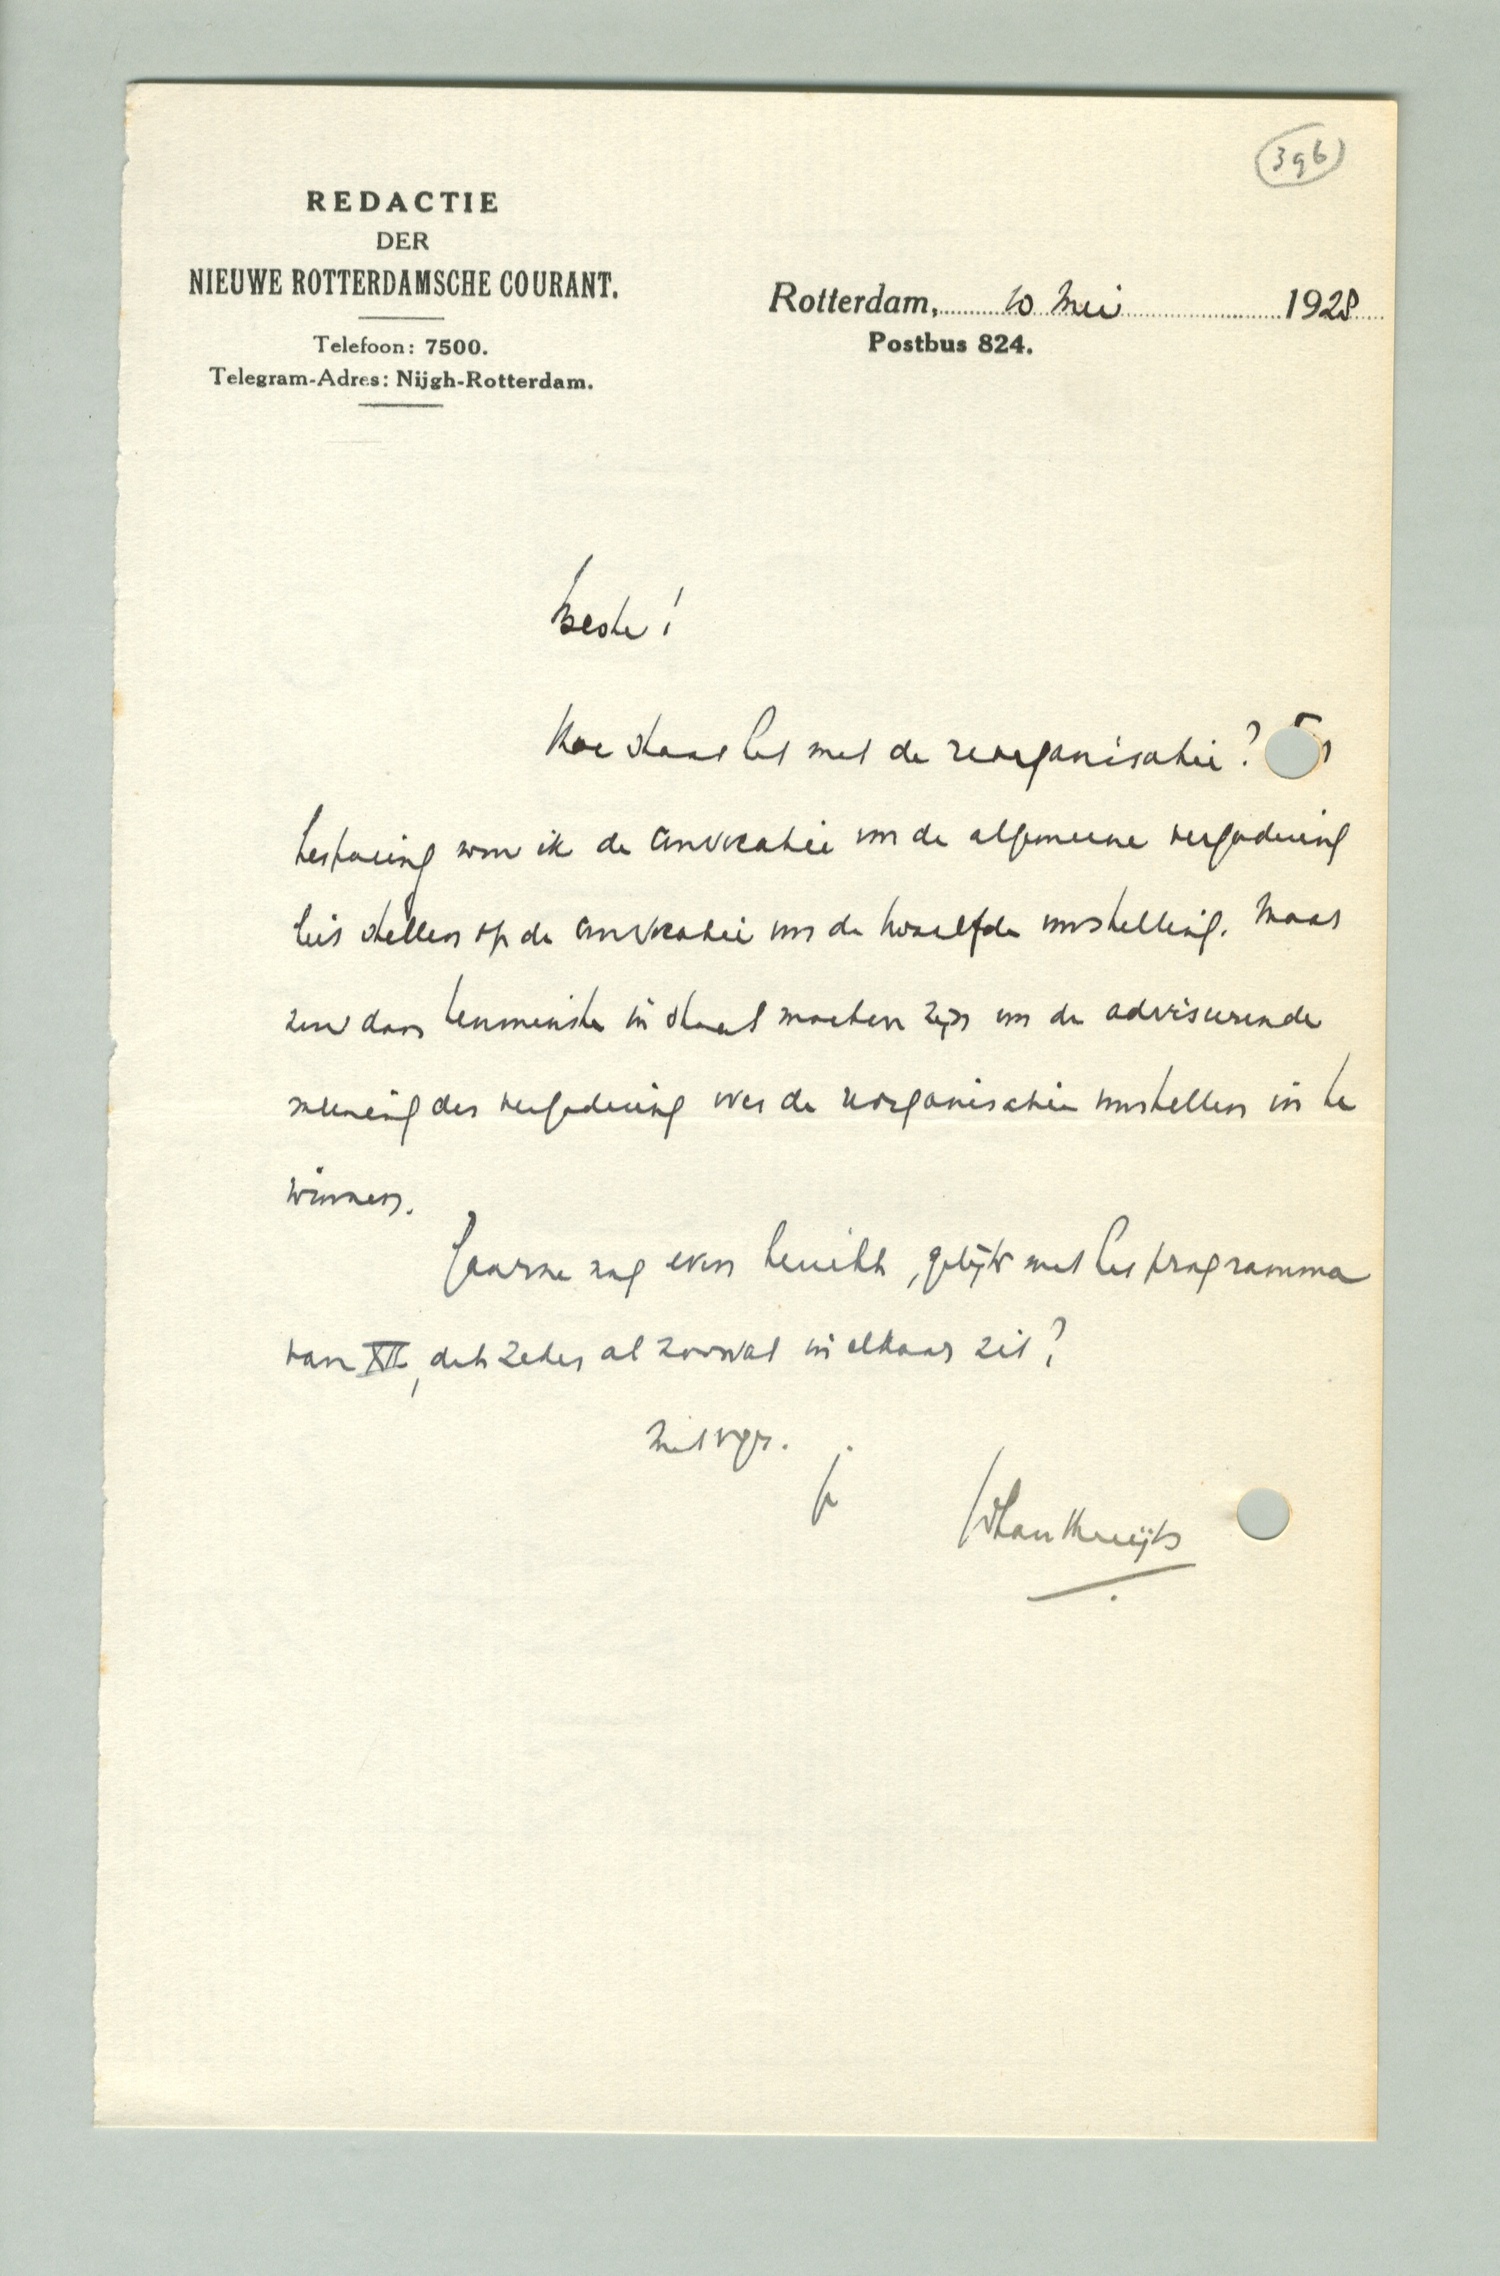 396
REDACTIE
DER
NIEUWE ROTTERDAMSCHE COURANT.
Telefoon: 7500.
Telegram-Adres: Nijgh-Rotterdam.
Rotterdam, 10 Mei 1928
Postbus 824.
Beste!
Hoe staat het met de reorganisatie?
besparing wou ik de convocatie voor de algemeene vergadering
hier stellen op de convocatie voor de twaalfde voorstelling. Maar
zou dan tenminste in staat moeten zijn om de adviseerende
meening der vergadering over de reorganisatie voorstellen in te
winnen.
Gaarne nog even bericht, gelijk met het programma
van XII, dat zeker al zoowat in elkaar zit?
Met vgr.
je
Johan Huijts